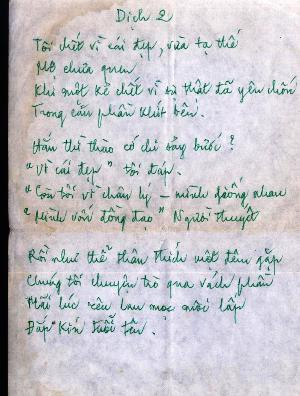 Dịch 2
Tôi chết vì cái đẹp, vừa tạ thế
Mộ chưa quen
Khi một kẻ chết vì sự thật đã yên chốn
Trong căn phần khít bên.
Hắn thì thào có chi sảy bước?
"Vì cái đẹp" tôi đáp.
"Còn tôi vì chân lý – mình giống nhau
"Mình vốn đồng đạo" Người thuyết
Rồi như thể thân thích một đêm gặp
Chúng tôi chuyện trò qua vách phần
Mãi lúc rêu lan mọc môi lấp
Đắp kín tên.